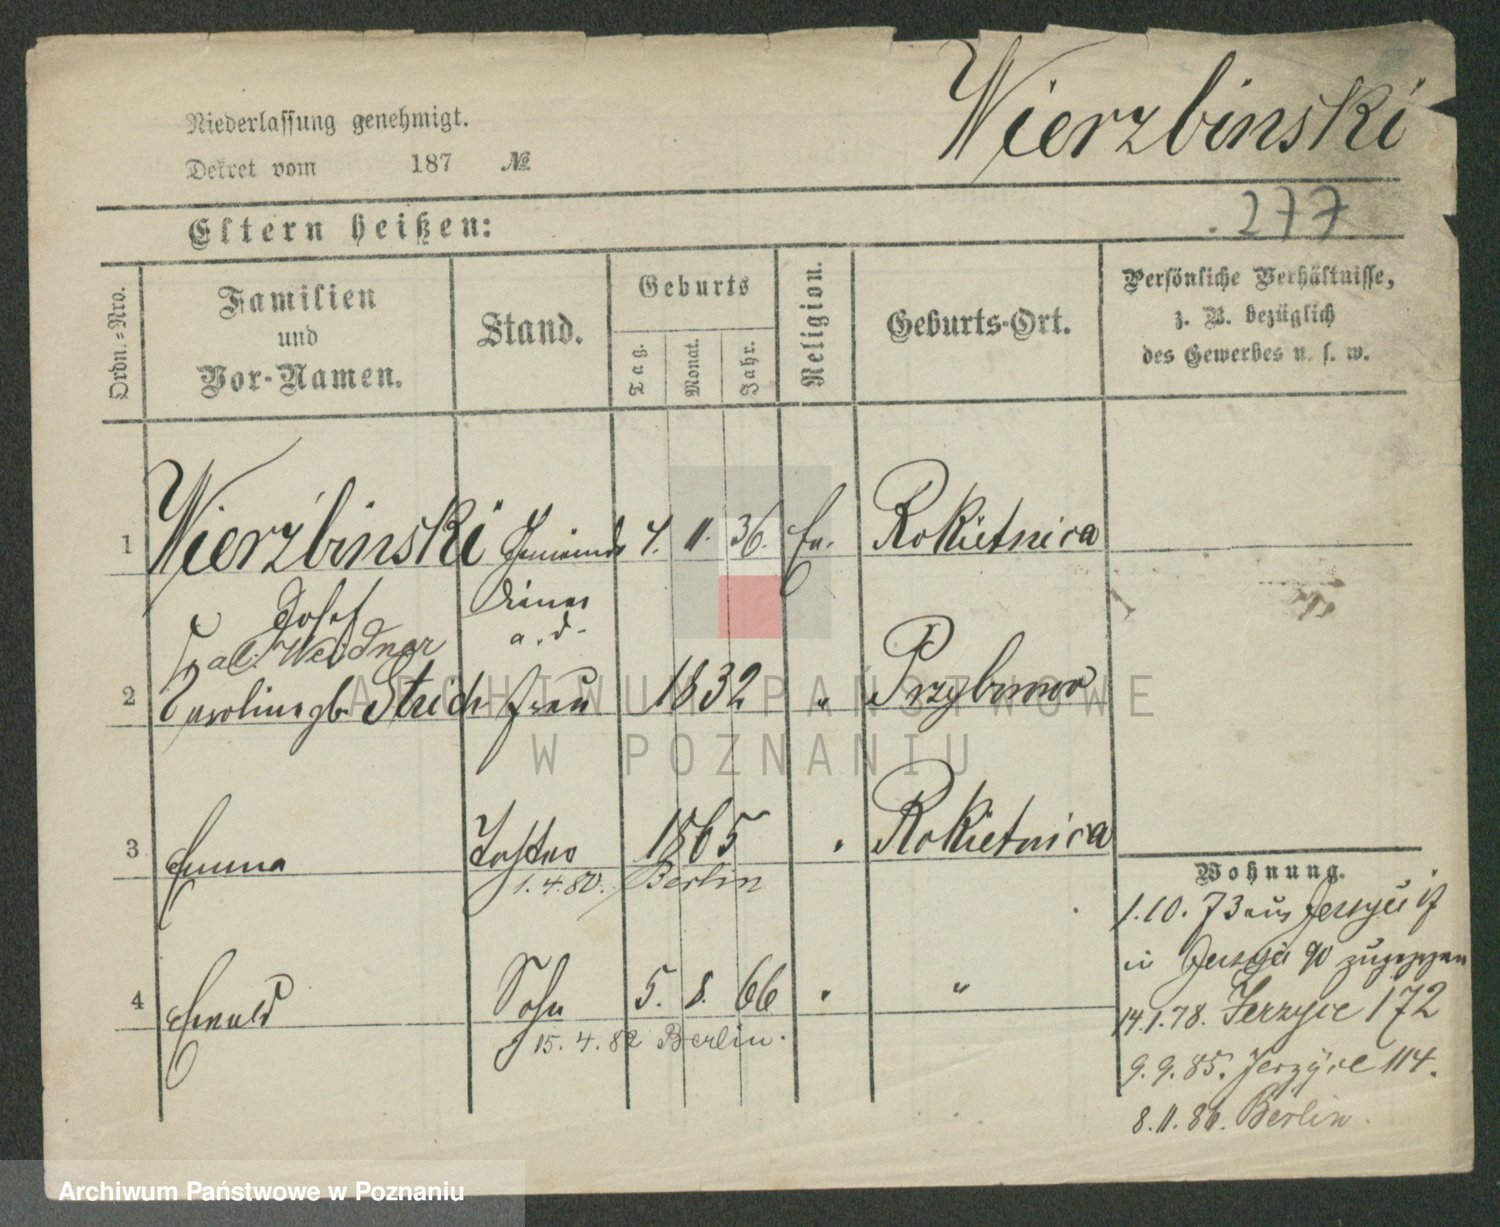 Wierzbinski
Niederlassung genehmigt.
Dekret vom 187 №
277
Eltern heißen:
Ordn.-Nro.
Familien
und
Vor-Namen.
Stand.
Geburts
Tag.
Monat.
Jahr.
Religion.
Geburts-Ort.
Persönliche Verhältnisse,
z. B. bezüglich
des Gewerbes u. s. w.
1 Wierzbinski Gemeinde 4. 11. 36. Ev. Rokietnica
Josef diener
a. d.
Weidner
2 Karoline gb Strich Frau 1832 " Przybrowo
3 Emma Tochter 1865 " Rokietnica
1.4.80. Berlin
4 Ewald Sohn 5. 8. 66 " "
15.4.82 Berlin.
Wohnung.
1.10.73 aus Jerzyce
in Jerzyce 90 zugezogen
14.1.78. Jerzyce 172
9.9.85. Jerzyce 114.
8.11.86. Berlin.
ARCHIWUM PAŃSTWOWE
W POZNANIU
Archiwum Państwowe w Poznaniu